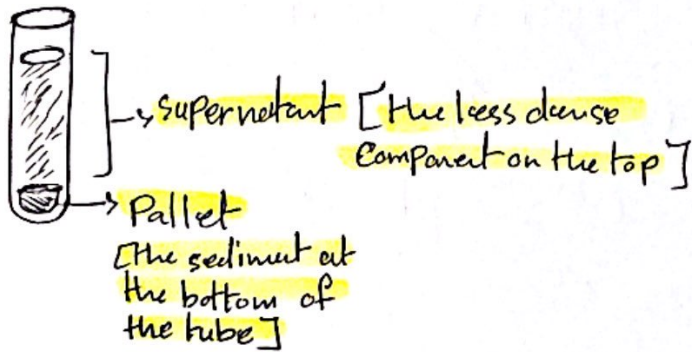 Supernatant [the less dense
Component on the top]
Pallet
[the sediment at
the bottom of
the tube]